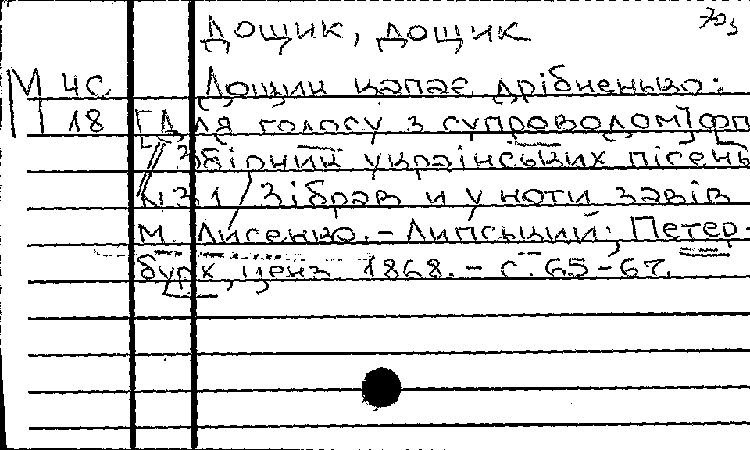 Дощик, дощик 703
М 4С Дощик капає дрібненько:
18 [Для голосу з супроводом] фп
// Збірник українських пісень
№ 3 1 / Зібрав и у ноти завів
М. Лисенко. - Липський; Петер-
бурх, ценз. 1868. - С. 65-67.